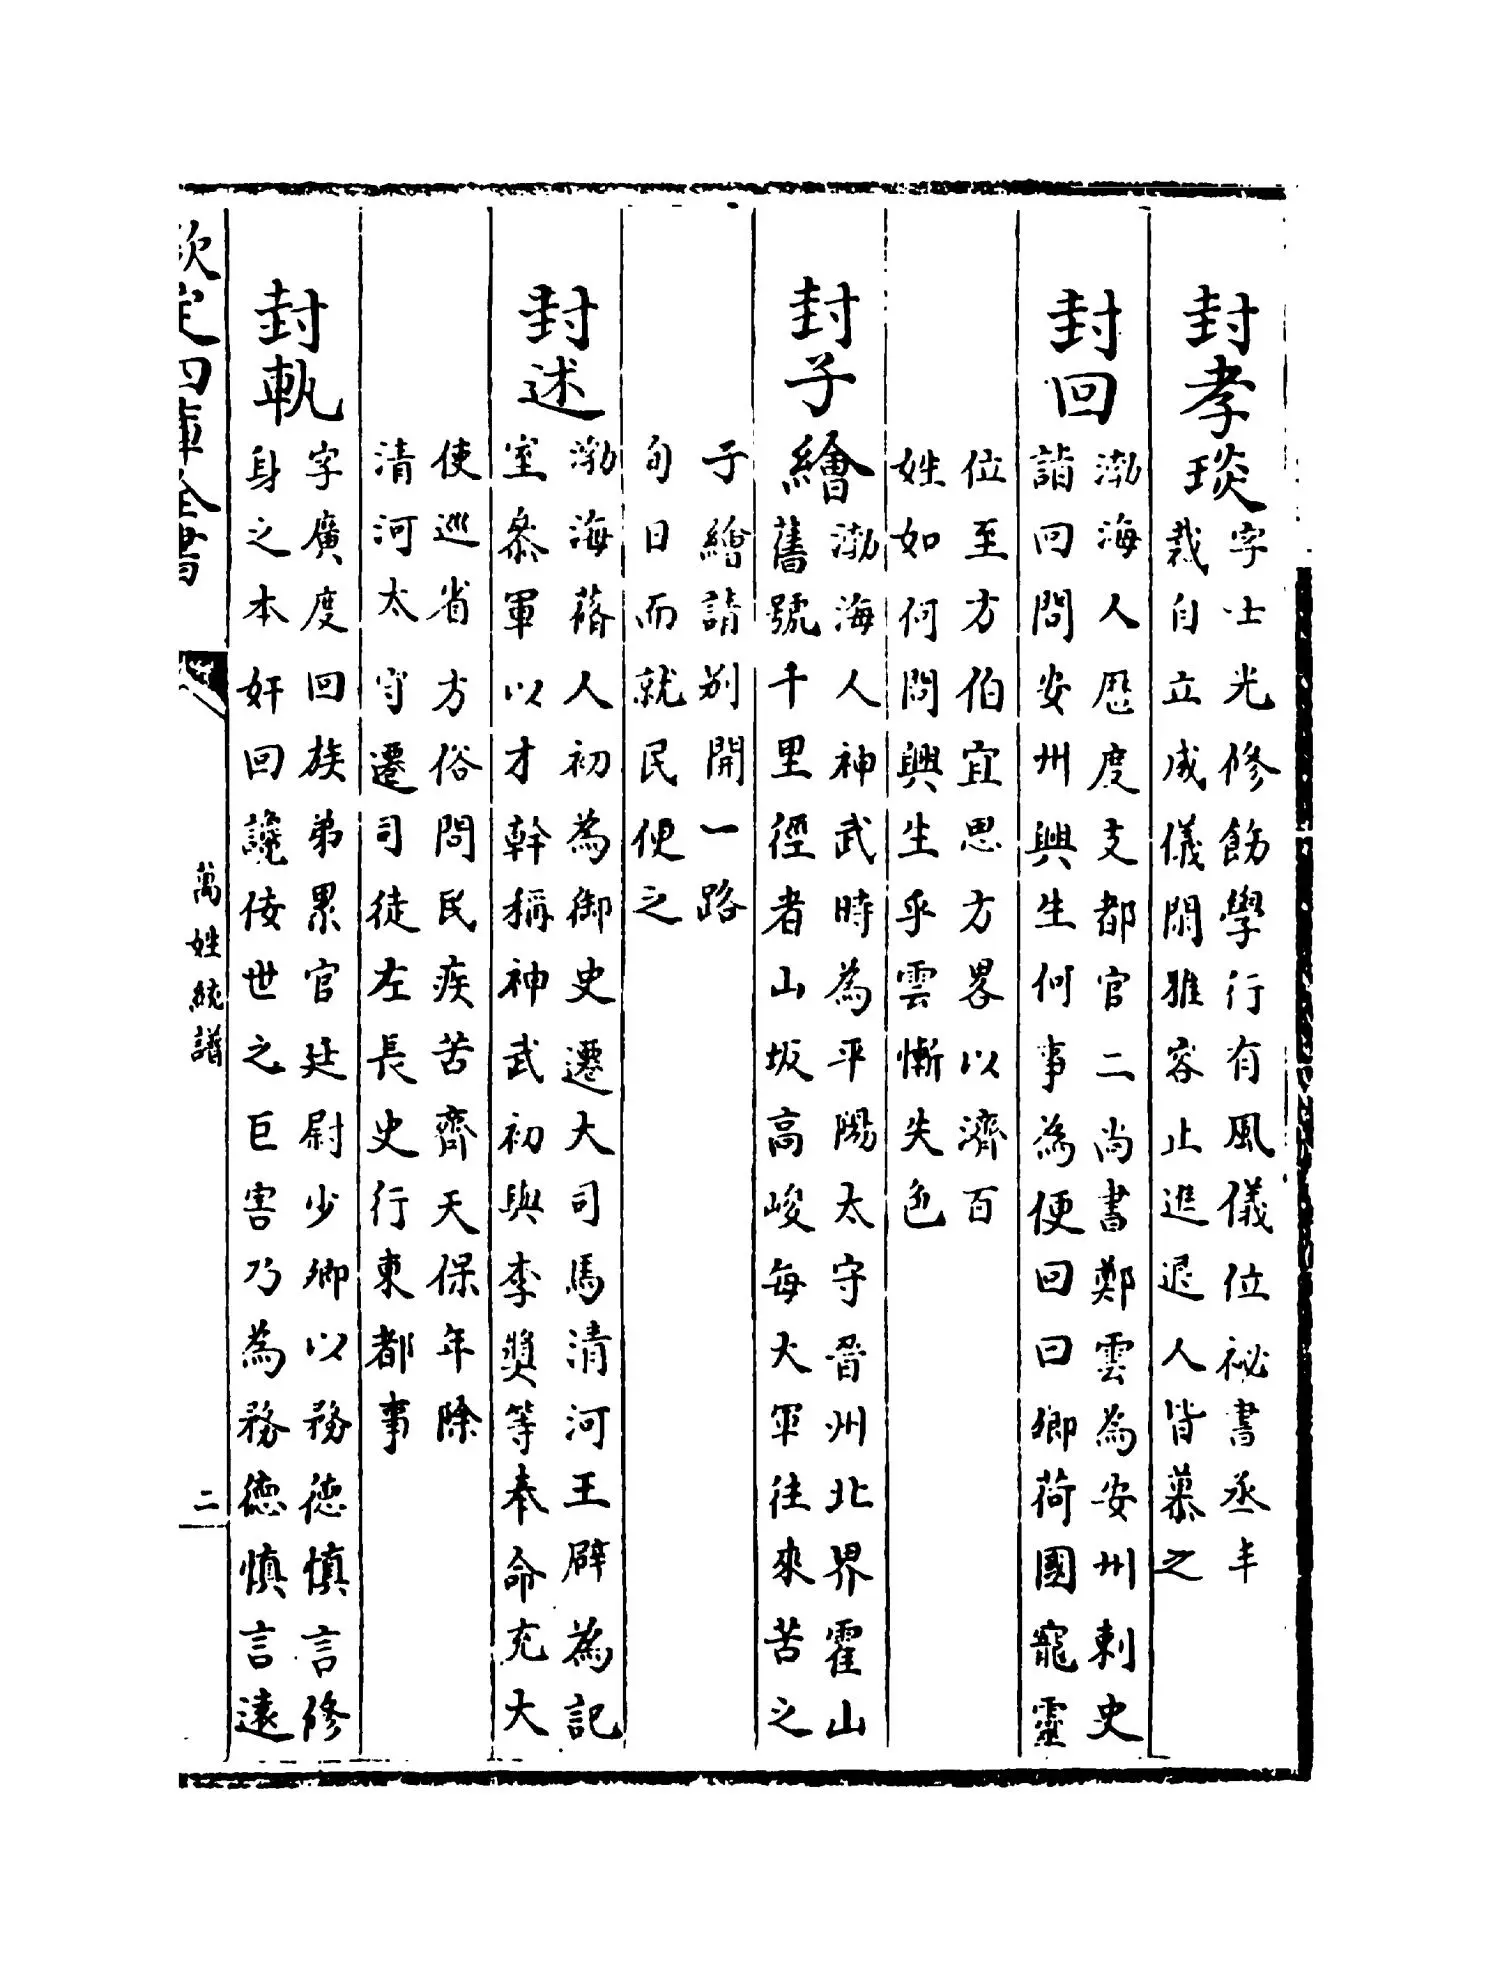 封孝琰
字士光修飭學行有風儀位祕書丞丰
裁自立威儀閑雅容止進退人皆慕之
封回
渤海人歴度支都官二尚書鄭雲為安州刺史
詣回問安州興生何事為便回曰卿荷國寵靈
位至方伯宜思方畧以濟百
姓如何問興生乎雲慚失色
封子繪
渤海人神武時為平陽太守晉州北界霍山
舊號千里徑者山坂髙峻每大軍往來苦之
子繪請别開一路
旬日而就民便之
封述
渤海蓨人初為御史遷大司馬清河王辟為記
室叅軍以才幹稱神武初與李奬等奉命充大
使巡省方俗問民疾苦齊天保年除
清河太守遷司徒左長史行東都事
封軌
字廣度回族弟累官廷尉少卿以務徳慎言修
身之本奸回讒佞世之巨害乃為務徳慎言逺
欽定四庫全書
萬姓統譜
二